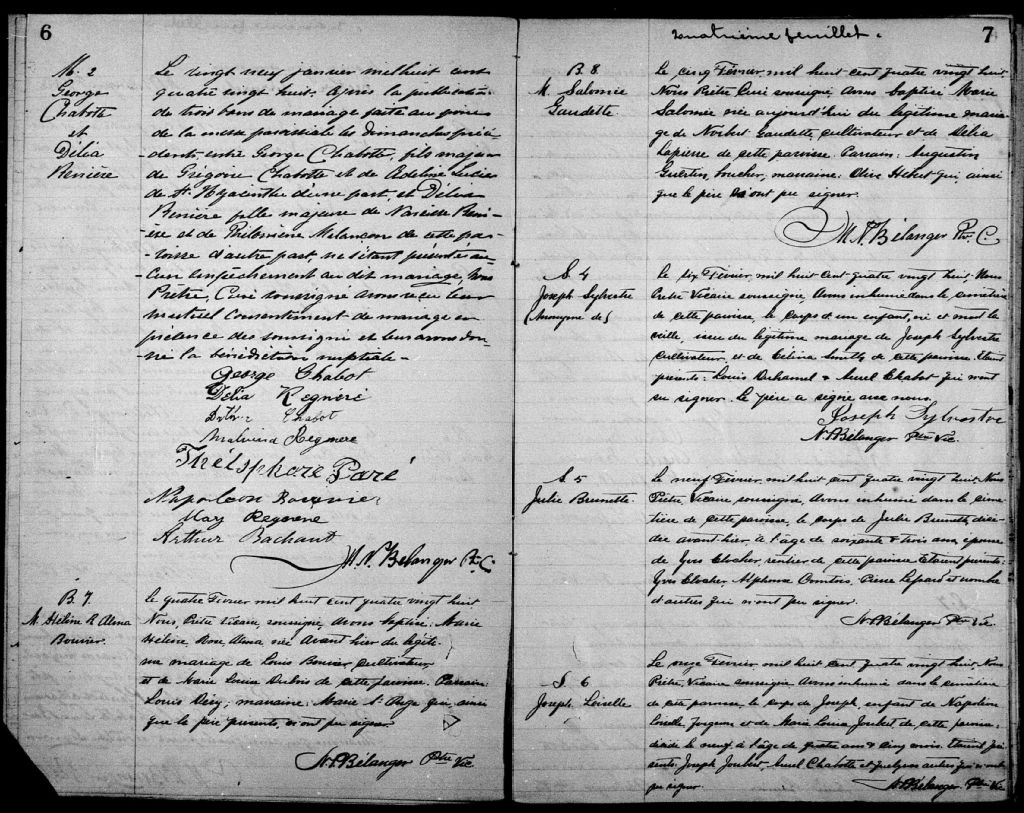 6
M. 2
George
Chabotte
et
Délia
Renière
Le vingt neuf janvier mil huit cent
quatre vingt huit. Après la publication
de trois bans de mariage faite au prône
de la messe paroissiale les dimanches précé-
-dents, entre George Chabotte, fils majeur
de Grégoire Chabotte et de Adeline
de St. Hyacinthe d'une part, et Délia
Renière fille majeure de Narcisse Reni-
ère et de Philomène Melançon de cette pa-
-roisse d'autre part, ne s'étant présenté au-
-cun empêchement au dit mariage, Nous
Prêtre, Curé soussigné avons reçu leur
mutuel consentement de mariage en
présence des soussigné et leur avons don-
né la bénédiction nuptiale -
George Chabot
Délia Regneré
Chabot
Malvina Regnere
Thélsphore Paré
Napoleon
May Regnere
Arthur Bachant
M. N. Bélanger Ptre C.
B. 7.
M. Hélène R. Alma
Bouvier.
Le quatre Février mil huit cent quatre vingt huit
Nous, Prêtre Vicaire, soussigné, avons baptisé Marie
Hélène, Rose, Alma née avant hier du légiti-
me mariage de Louis Bouvier, cultivateur
et de Marie Louise Dubois de cette paroisse. Parrain:
Louis Viens; marraine: Marie qui, ainsi
que le père présente, n'ont pu signer
N. P. Bélanger Ptre Vic
quatrième feuillet.
7
B. 8.
M. Salomée
Gaudette.
Le cinq Février, mil huit cent quatre vingt huit
Nous Prêtre Curé soussigné, Avons baptisé Marie
Salomée née aujourd'hui du légitime maria-
ge de Norbert Gaudette, cultivateur et de Délia
Lapierre de cette paroisse. Parrain: Augustin
Guertin, boucher, marraine: Olive Hébert qui, ainsi
que le père n'ont pu signer.
M. N. Bélanger Ptre C.
S. 4
Joseph Sylvestre
(Anonyme de)
Le six Février, mil huit cent quatre vingt huit, Nous
Prêtre Vicaire soussigné, Avons inhumé dans le cimetière
de cette paroisse, le corps d'un enfant, né et mort la
veille, issu du légitime mariage de Joseph Sylvestre
cultivateur, et de Célina de cette paroisse. Etaient
présents: Louis Duhamel & Aurel Chabot qui n'ont
su signer. Le père a signé avec nous.
Joseph Sylvestre
N. P. Bélanger Ptre Vic.
S. 5
Julie Brunette
Le neuf Février, mil huit cent quatre vingt huit Nous
Prêtre, Vicaire soussigné, Avons inhumé dans le cime-
tière de cette paroisse, le corps de Julie Brunette, décé-
dée avant-hier, à l'âge de soixante & trois ans, épouse
de Yves Clocher, rentier de cette paroisse. Etaient présents:
Yves Clocher, Alphonse, Pierre et nombre
d'autres qui n'ont pu signer.
N. P. Bélanger Ptre Vic.
S. 6
Joseph Loiselle
Le onze Février, mil huit cent quatre vingt huit, Nous
Prêtre, Vicaire soussigné. Avons inhumé dans le cimetière
de cette paroisse, le corps de Joseph, enfant de Napoléon
Loiselle, forgeron et de Marie Louise Joubert de cette paroisse
décédé le neuf, à l'âge de quatre ans & cinq mois. Etaient pré-
sents: Joseph Joubert, Aurel Chabotte et quelques autres qui n'ont
pu signer.
N. P. Bélanger Ptre Vic.